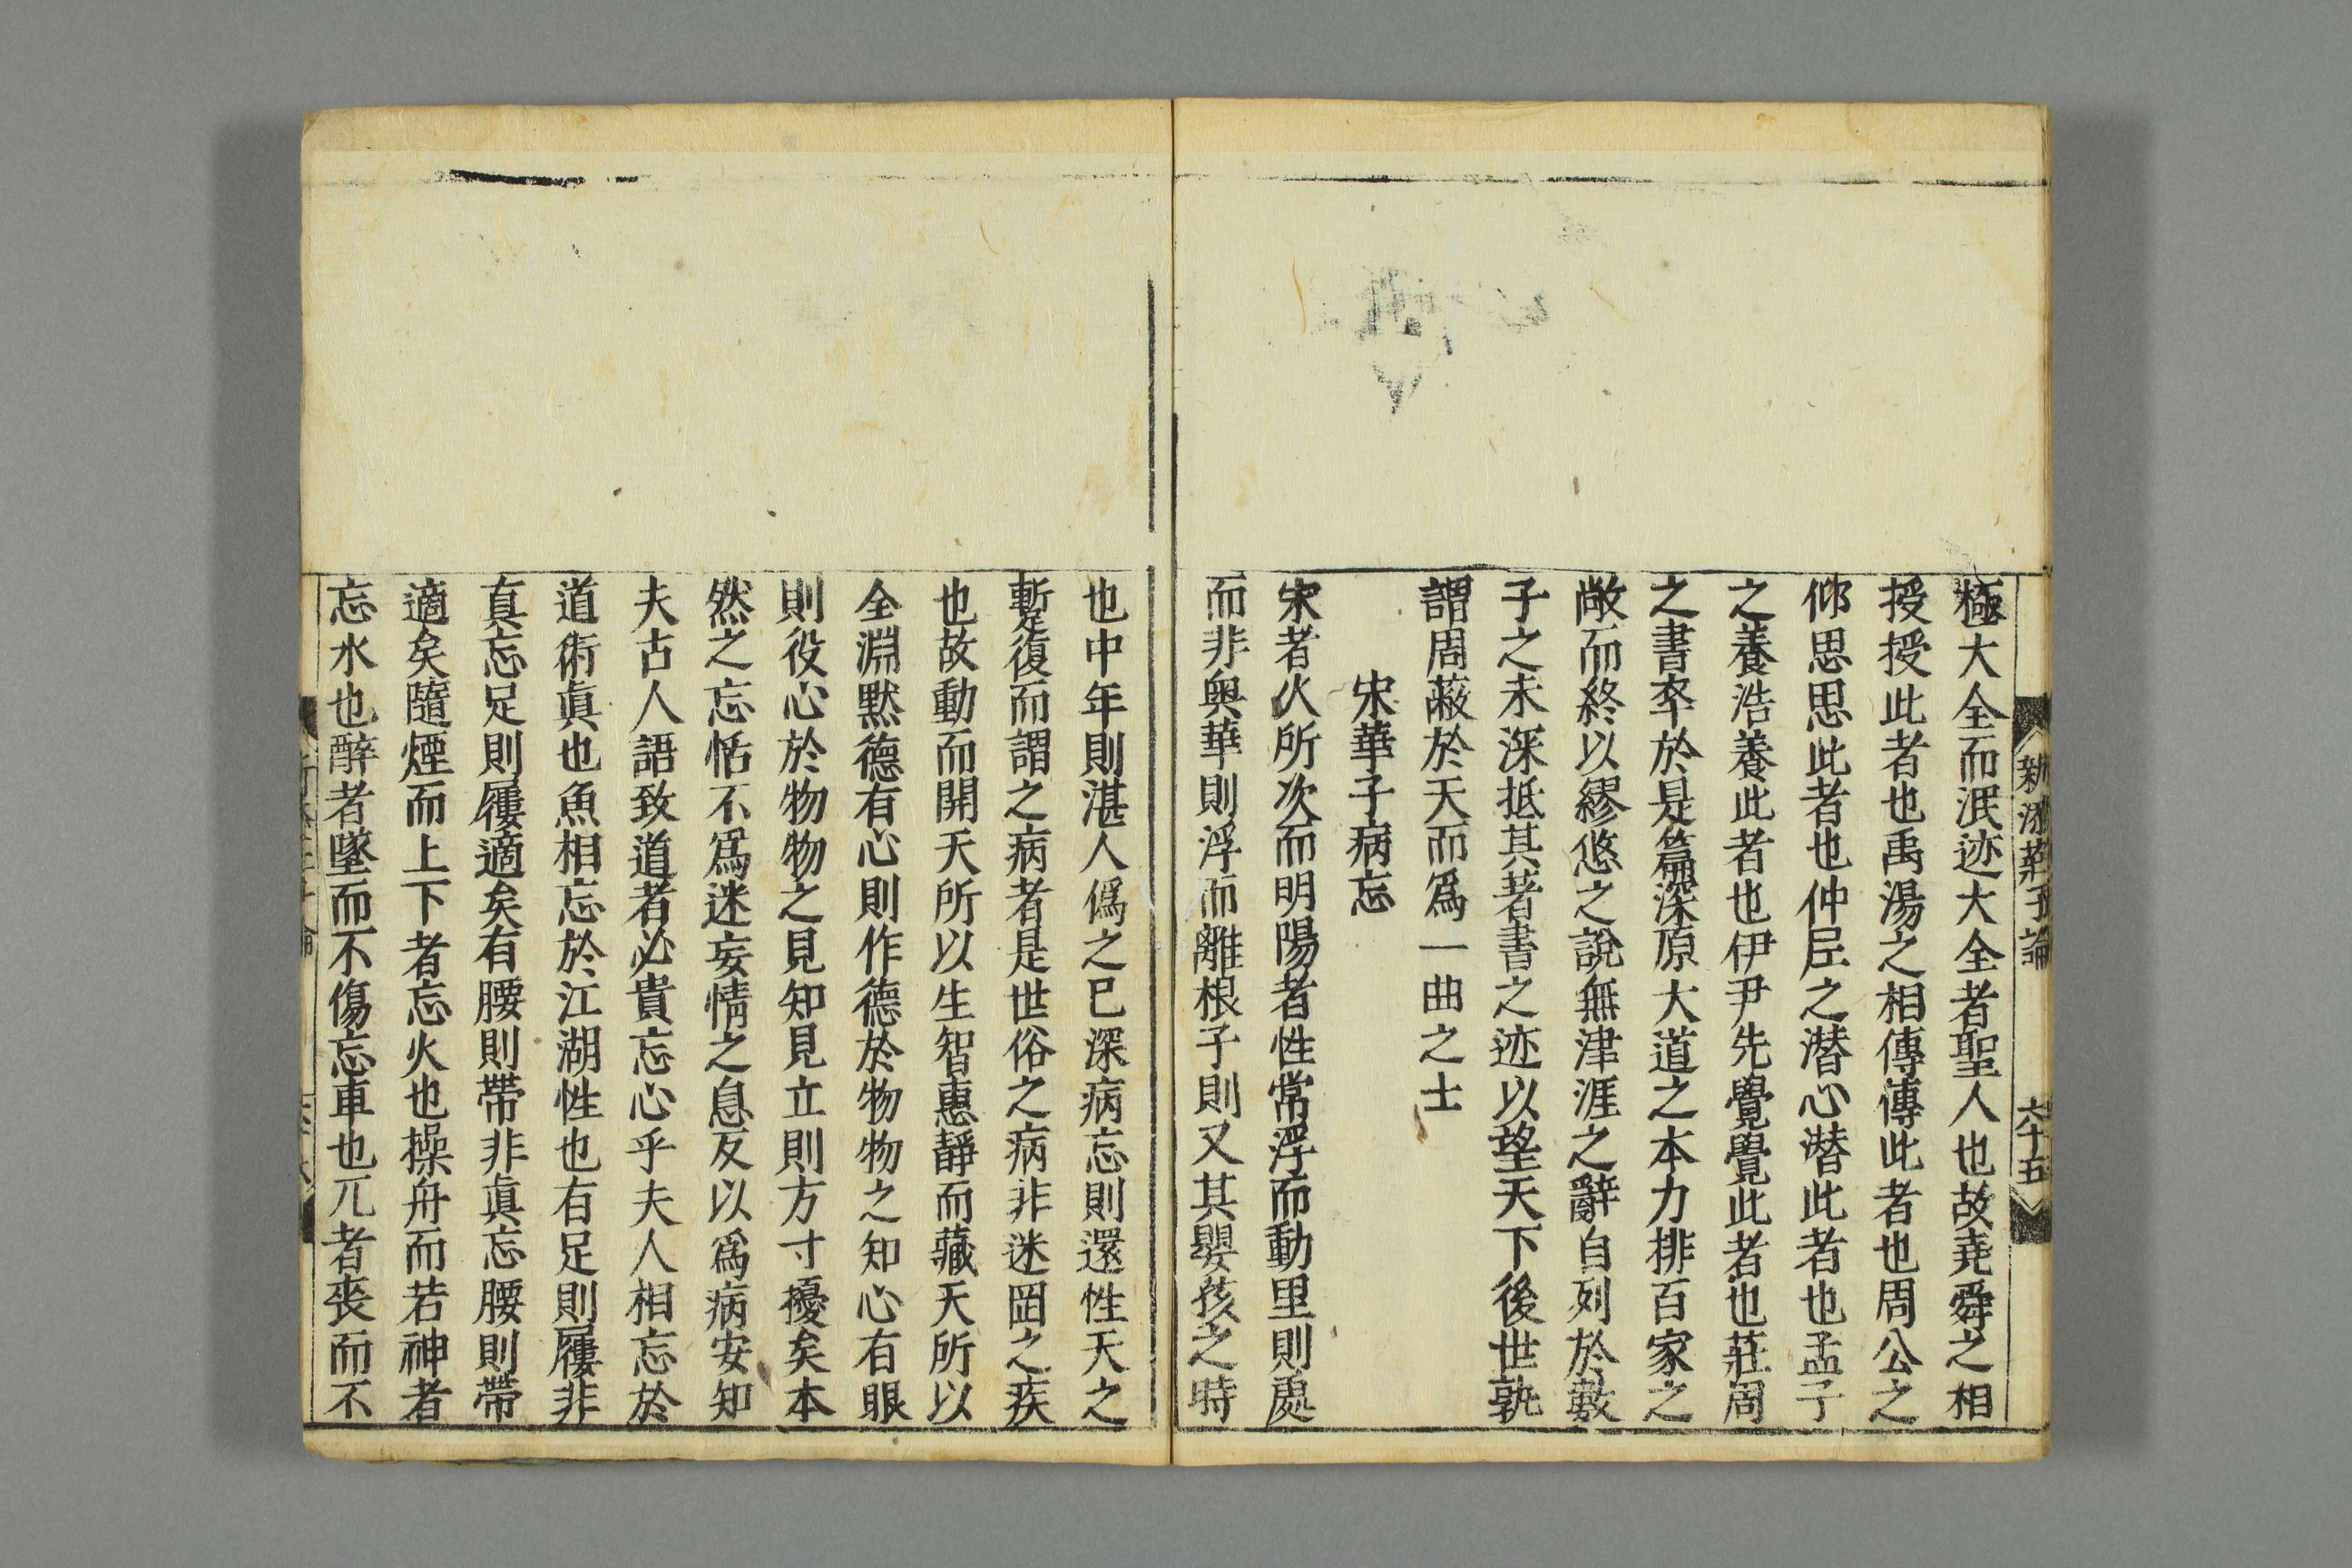 新添莊子論 六十五
極大全而泯迹大全者聖人也故堯舜之相
授授此者也禹湯之相傳傳此者也周公之
仰思思此者也仲𡰱之潜心潜此者也孟子
之養浩養此者也伊尹先覺覺此者也莊周
之書卒於是篇深原大道之本力排百家之
敞而終以繆悠之說無津涯之辭自列於數
子之未深抵其著書之迹以望天下後世孰
謂周蔽於天而爲一曲之士
宋華子病忘
宋者火所次而明陽者性常浮而動里則處
而非奥華則浮而離根子則又其嬰孩之時
也中年則湛人僞之已深病忘則還性天之
暫復而謂之病者是世俗之病非迷罔之疾
也故動而開天所以生智惠靜而藏天所以
全淵黙德有心則作德於物物之知心有眼
則役心於物物之見知見立則方寸擾矣本
然之忘恬不爲迷妄情之息反以爲病安知
夫古人語致道者必貴忘心乎夫人相忘於
道術真也魚相忘於江湖性也有足則屨非
真忘足則屨適矣有腰則帶非真忘腰則帶
適矣隨煙而上下者忘火也操舟而若神者
忘水也醉者墜而不傷忘車也兀者喪而不